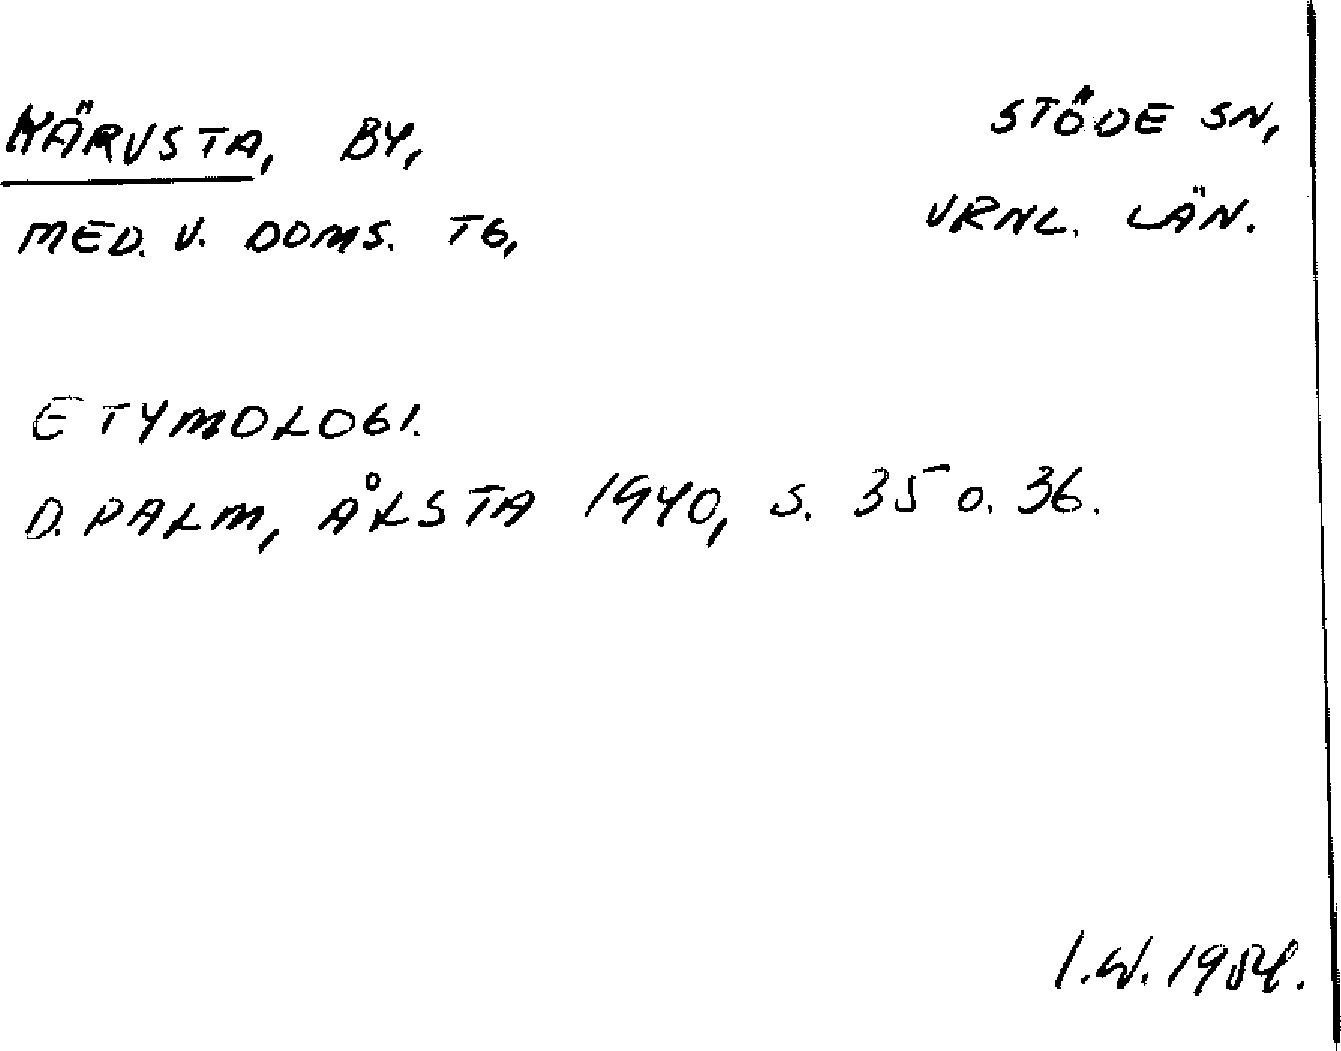 KÄRVSTA, BY, STÖDE SN,
MED. V. DOMS. TG, VRNL. LÄN.
ETYMOLOGI.
D. PALM, ÅLSTA 1940, S. 35 O. 36.
I.W. 1954.